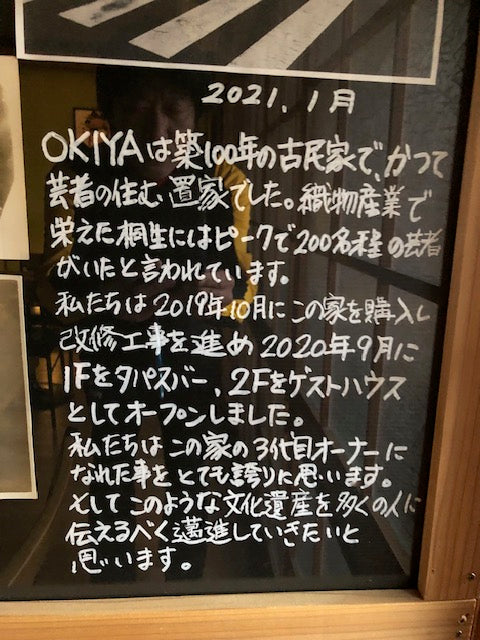 2021.1月
OKIYAは築100年の古民家で、かつて
芸者の住む、置家でした。織物産業で
栄えた桐生にはピークで200名程の芸者
がいたと言われています。
私たちは2019年10月にこの家を購入し
改修工事を進め2020年9月に
1Fをタパスバー、2Fをゲストハウス
としてオープンしました。
私たちはこの家の3代目オーナーに
なれた事をとても誇りに思います。
そしてこのような文化遺産を多くの人に
伝えるべく邁進していきたいと
思います。